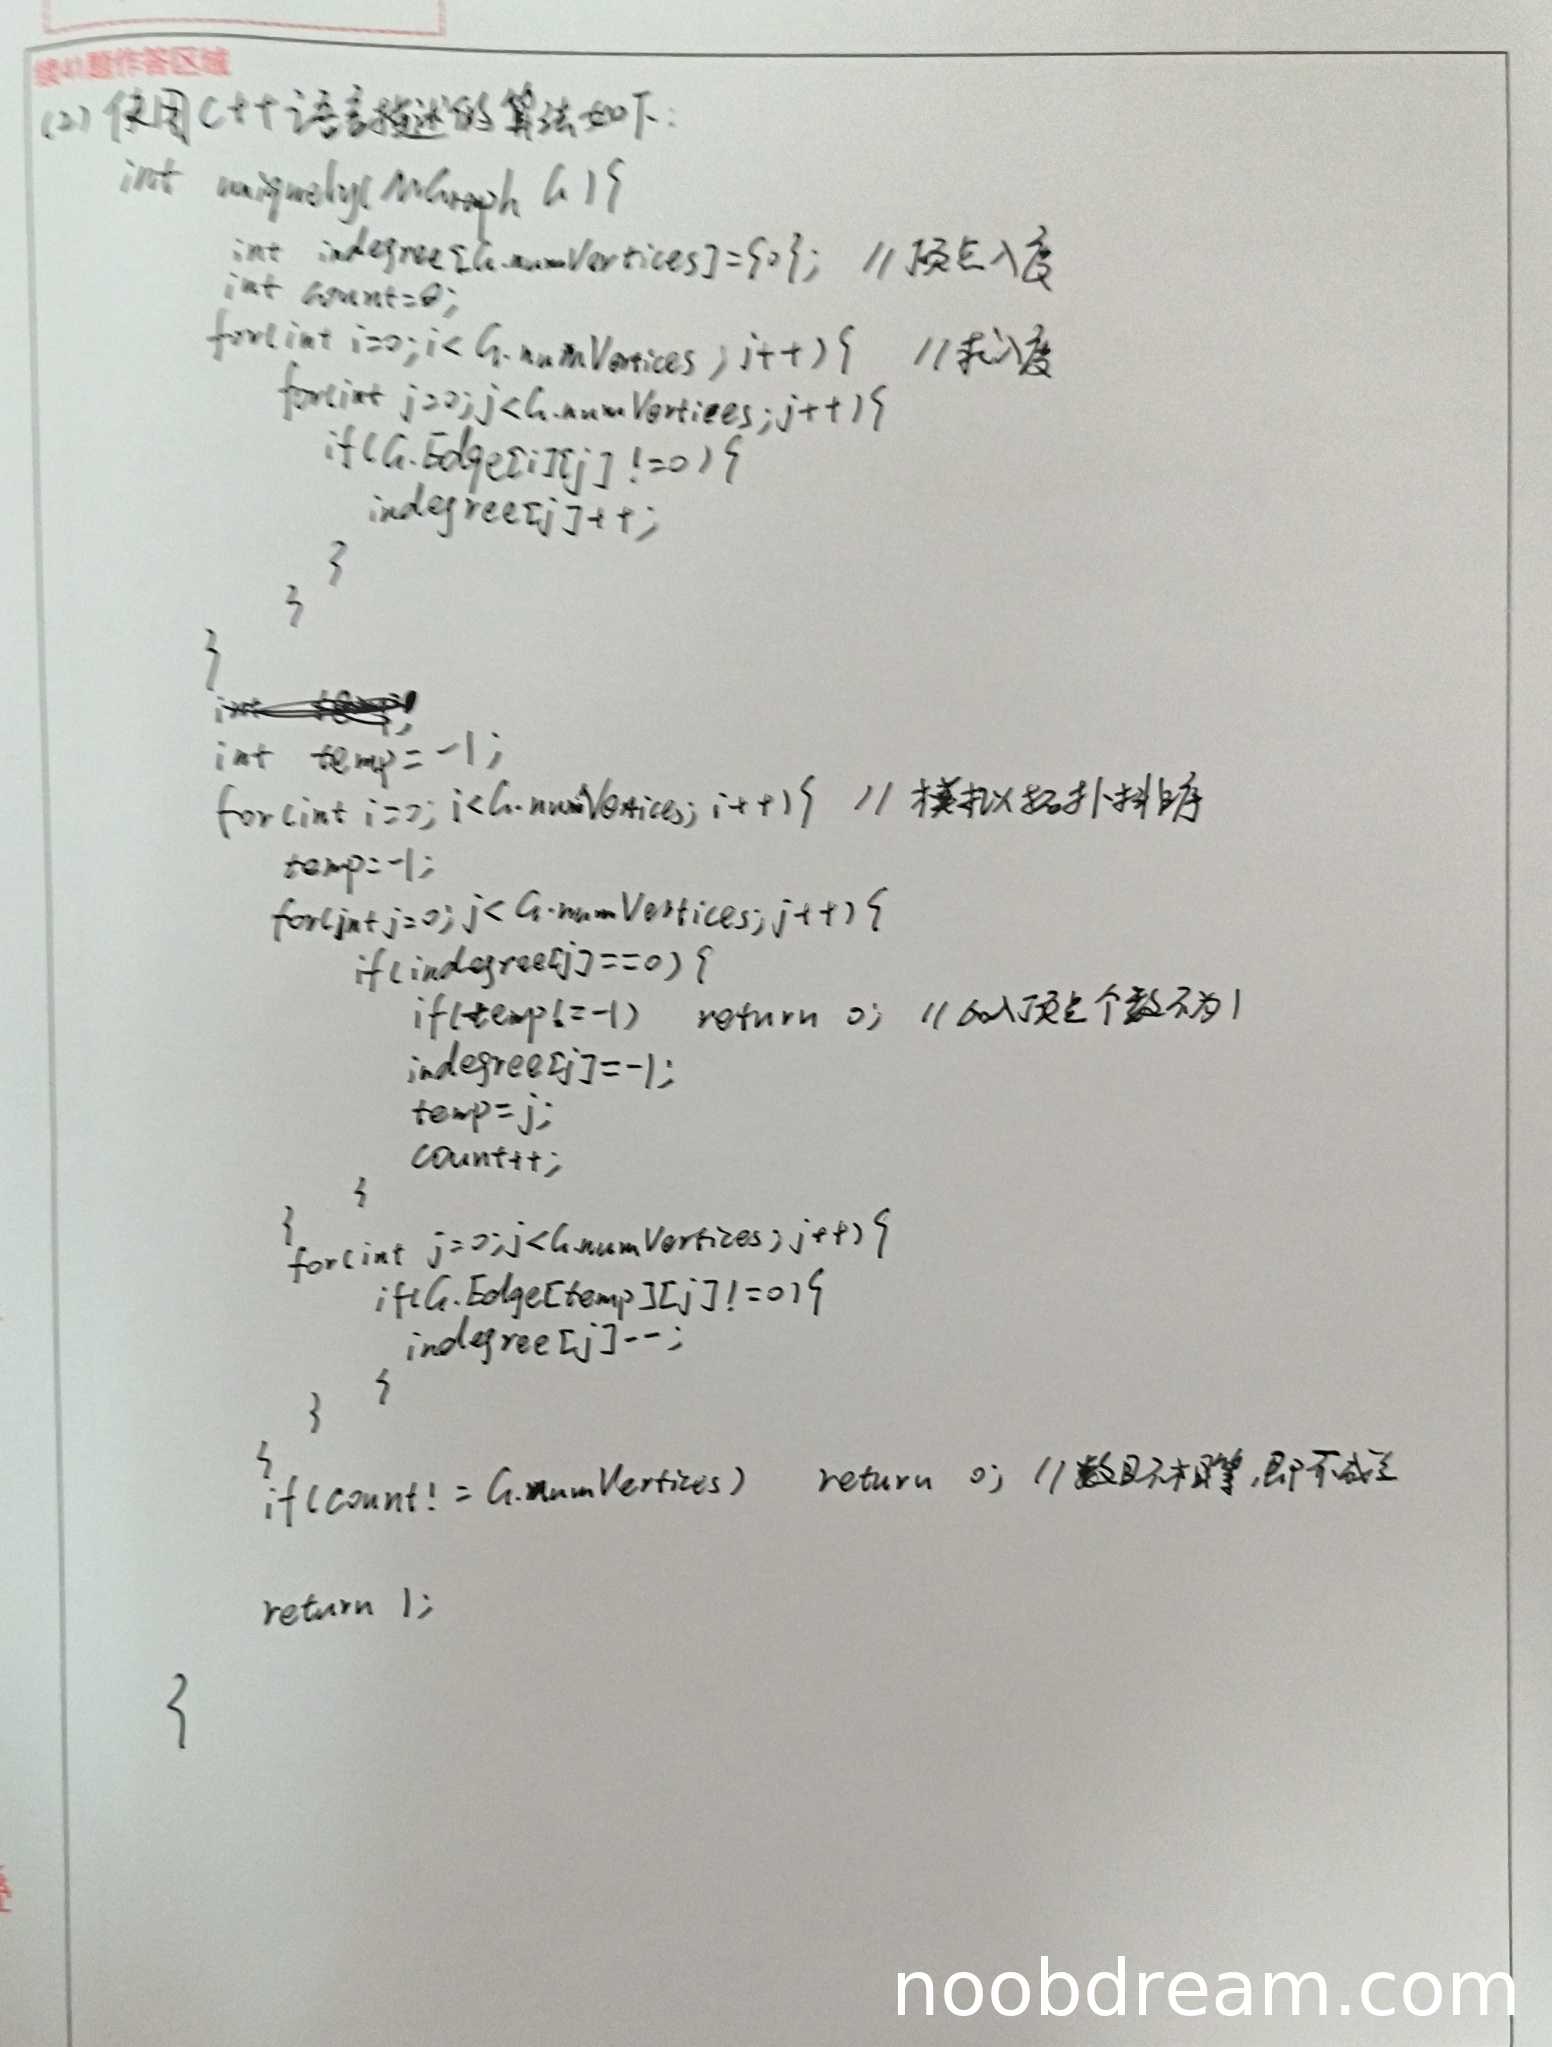 续41题作答区域
(2) 使用C++语言描述的算法如下:
int uniquely(MGraph G){
int indegree[G.numVertices]={0}; //顶点入度
int count=0;
for(int i=0;i<G.numVertices;i++){ //求入度
for(int j=0;j<G.numVertices;j++){
if(G.Edge[i][j]!=0){
indegree[j]++;
}
}
}
int temp=-1;
for(int i=0;i<G.numVertices;i++){ //模拟拓扑排序
temp=-1;
for(int j=0;j<G.numVertices;j++){
if(indegree[j]==0){
if(temp!=-1) return 0; //入顶点个数不为1
indegree[j]=-1;
temp=j;
count++;
}
}
for(int j=0;j<G.numVertices;j++){
if(G.Edge[temp][j]!=0){
indegree[j]--;
}
}
}
if(count!=G.numVertices) return 0; //数目不相等,即不成立
return 1;
}
noobdream.com